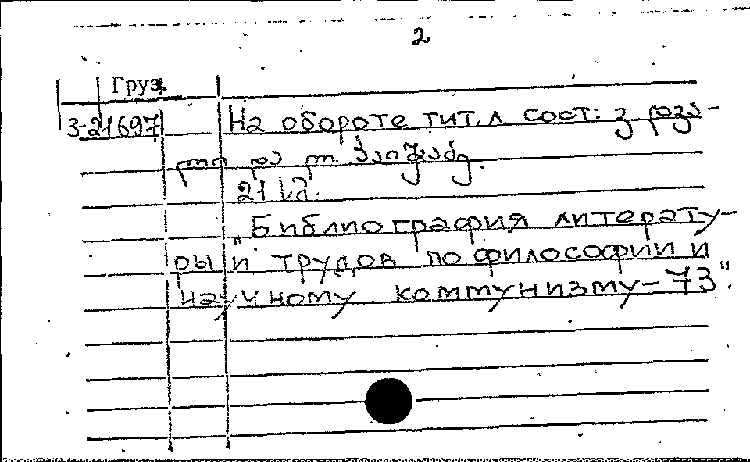 2
Груз.
3-21697 На обороте тит. л сост: ვ.
და თ.
21 სმ.
„Библиография литерату-
ры и трудов по философии и
научному коммунизму-73".